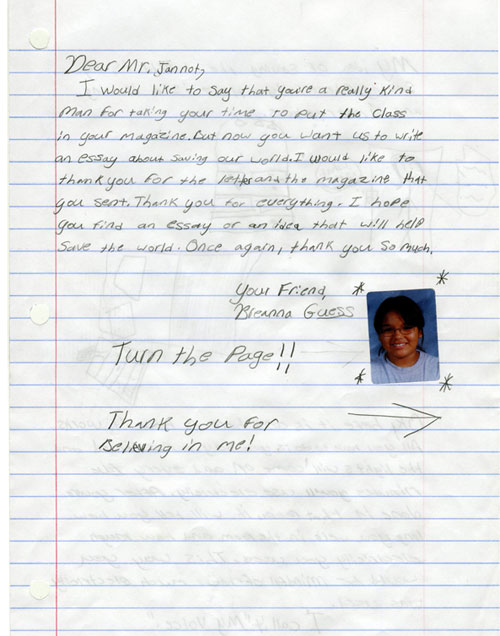 Dear Mr. Jannot,
I would like to say that you're a really kind
man for taking your time to put the class
in your magazine. But now you want us to write
an essay about saving our world. I would like to
thank you for the letter and the magazine that
you sent. Thank you for everything. I hope
you find an essay or an idea that will help
save the world. Once again, thank you so much.
Your Friend,
Breanna Guess
Turn the Page!!
Thank you for
Believing in me!